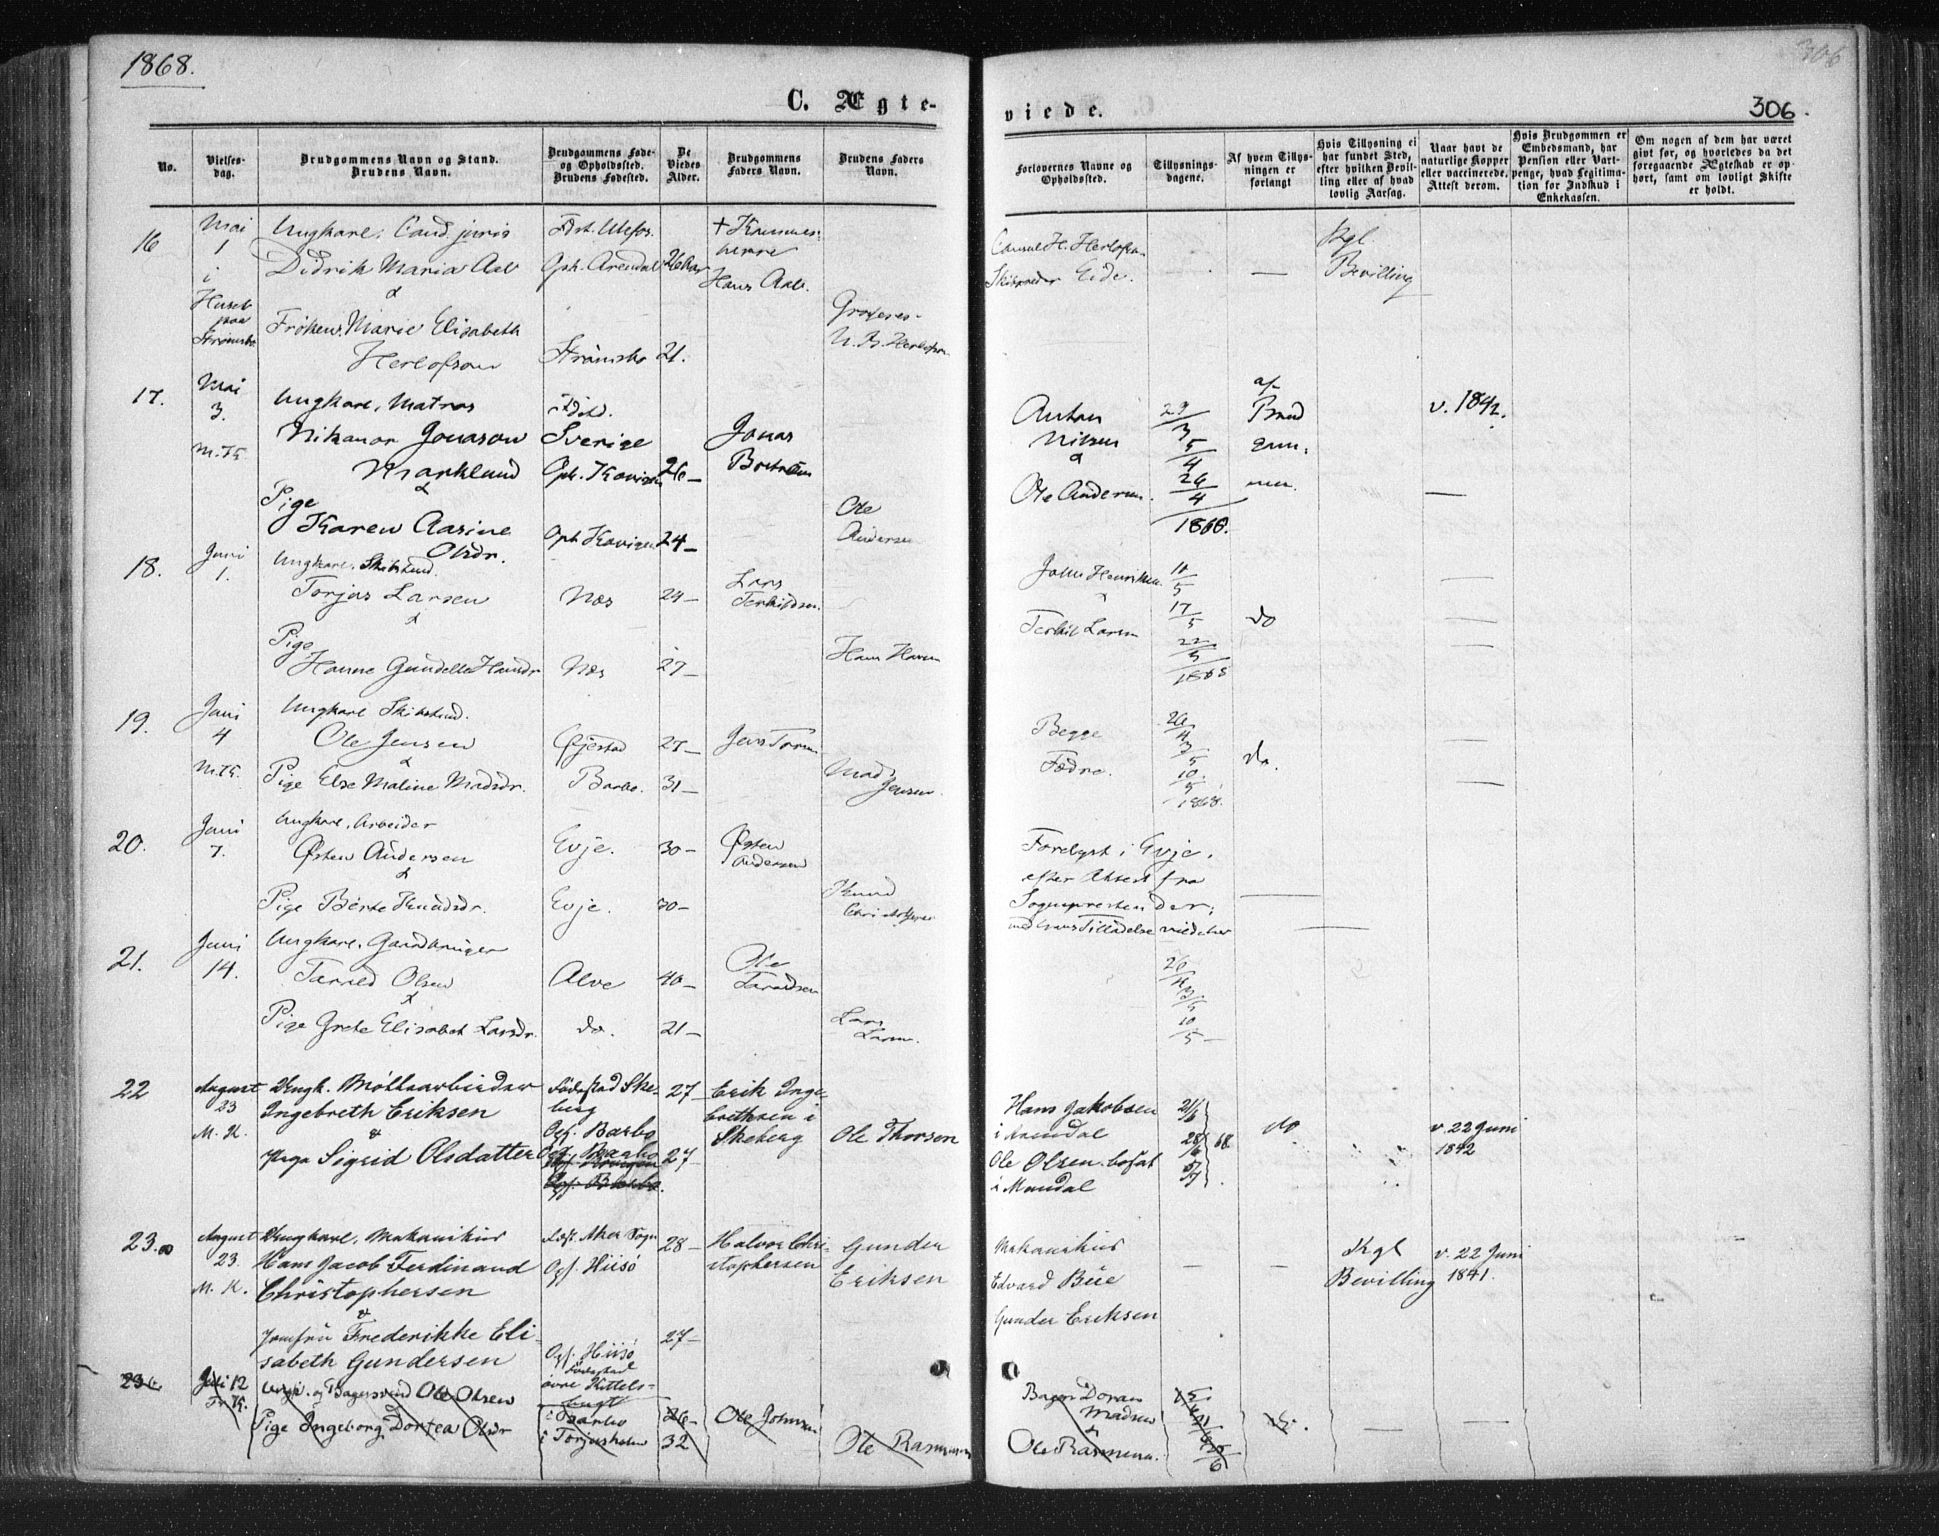 1868.
306
C. Ægte-
viede.
306.
No.
Vielses-
dag.
Brudgommens Navn og Stand.
Brudens Navn.
Brudgommens Føde-
og Opholdssted.
Brudens Fødested.
De
Viedes
Alder.
Brudgommens
Faders Navn.
Brudens Faders
Navn.
Forlovernes Navne og
Opholdssted.
Tillysnings-
dagene.
Af hvem Tillys-
ningen er
forlangt
Hvis Tillysning ei
har fundet Sted,
efter hvilken Bevil-
ling eller af hvad
lovlig Aarsag.
Naar havt de
naturlige Kopper
eller vaccinerede.
Attest derom.
Hvis Brudgommen er
Embedsmand, har
Pension eller Vart-
penge, hvad Legitima-
tion for Indskud i
Enkekassen.
Om nogen af dem har været
givt før, og hvorledes da det
foregaaende Ægteskab er op-
hørt, samt om lovligt Skifte
er holdt.
16 Mai 1 i Huset paa
Ungkarl. Cand juris
Didrik Maria Aall
&
Frøken Marie Elisabeth
Herlofson
Oph. Arendal 26 Aar
Strømsbo 21.
Hans Aall.
Consul H. Herlofson
Skibsreder Eide.
Kgl.
Bevilling
17. Mai 3. M.K.
Ungkarl, Matros
Nikanor Jonason
Marklund
&
Pige
Karen Aasine
Olsdr.
Sverige
Oph. Kovigen 26-
Oph Kovigen 24-
Jonas
Boström
Ole
Andersen
Anton
Nilsen
&
Ole Andersen.
29/3
5/4
26/4
1868.
af
Brud
gom-
men.
v. 1842.
18. Juni 1.
Ungkarl. Skibstmd.
Torjus Larsen
&
Pige
Hanne Gundelle Hansdr
Næs 24-
Næs 27-
Lars
Terkildsen.
Hans Hansen
John Henriksen
&
Terkil Larsen
10/5
17/5
22/5
1868
do
19. Juni 4 M.K.
Ungkarl Skibstmd.
Ole Jensen
&
Pige Else Maline Madsdr.
Øjestad 27-
Barbo. 31-
Mads
Jensen.
Begge
Fædre.
26/4
3/5
10/5
1868.
do.
20. Juni 7.
Ungkarl, Arbeider
Østen Andersen
&
Pige Berte Knudsdr.
Evje. 30-
Evje. 30-
Østen
Andersen
Knud
Christophersen
Forelyst i Evje.
efter Attest fra
Sognepresten der;
med hans Tilladelse
21. Juni 14.
Ungkarl. Gaardbruger
Tarald Olsen
&
Pige Grete Elisabet Larsdr.
Alve 40-
do. 21-
Ole
Taraldsen
Lars
Larsen.
26/4
3/5
10/5
22 August 23 M. K.
Ungk. Möllearbeider
Ingebreth Eriksen
&
Pige Sigrid Olsdatter
Fødested Ske-
berg
Opf. Barbo
Opf. Barbo
27-
27-
Erik Inge-
brethsen i
Skeberg
Ole Thorsen
Hans Jakobsen
i Arendal
Ole Olsen bosat
i Mandal
21/6
28/6
5/7
68.
do
v. 22 Juni
1842
23. August 23. M. K.
Ungkarl. Mekanikus
Hans Jacob Ferdinand
Christophersen
&
Jomfru Frederikke Eli-
sabeth Gundersen
Fødst. Aker Sogn
Opf. Hiisö
28-
Opf. Hiisö
27-
Halvor Chri-
stophersen
Gunder
Eriksen
Mekanikus
Edvard Büe
Gunder Eriksen
Kgl
Bevilling
v. 22 Juni
1841.
Juli 12
Ungk. og Bagersvend Ole Olsen
Pige Ingeborg Dortea Olsdr
Fødested
øvre Kittels-
bugt
i Barbo 26-
i Torjusholm 32
Ole Johnsen
Ole Rasmussen
Madsen
&
Ole Rasmussen.